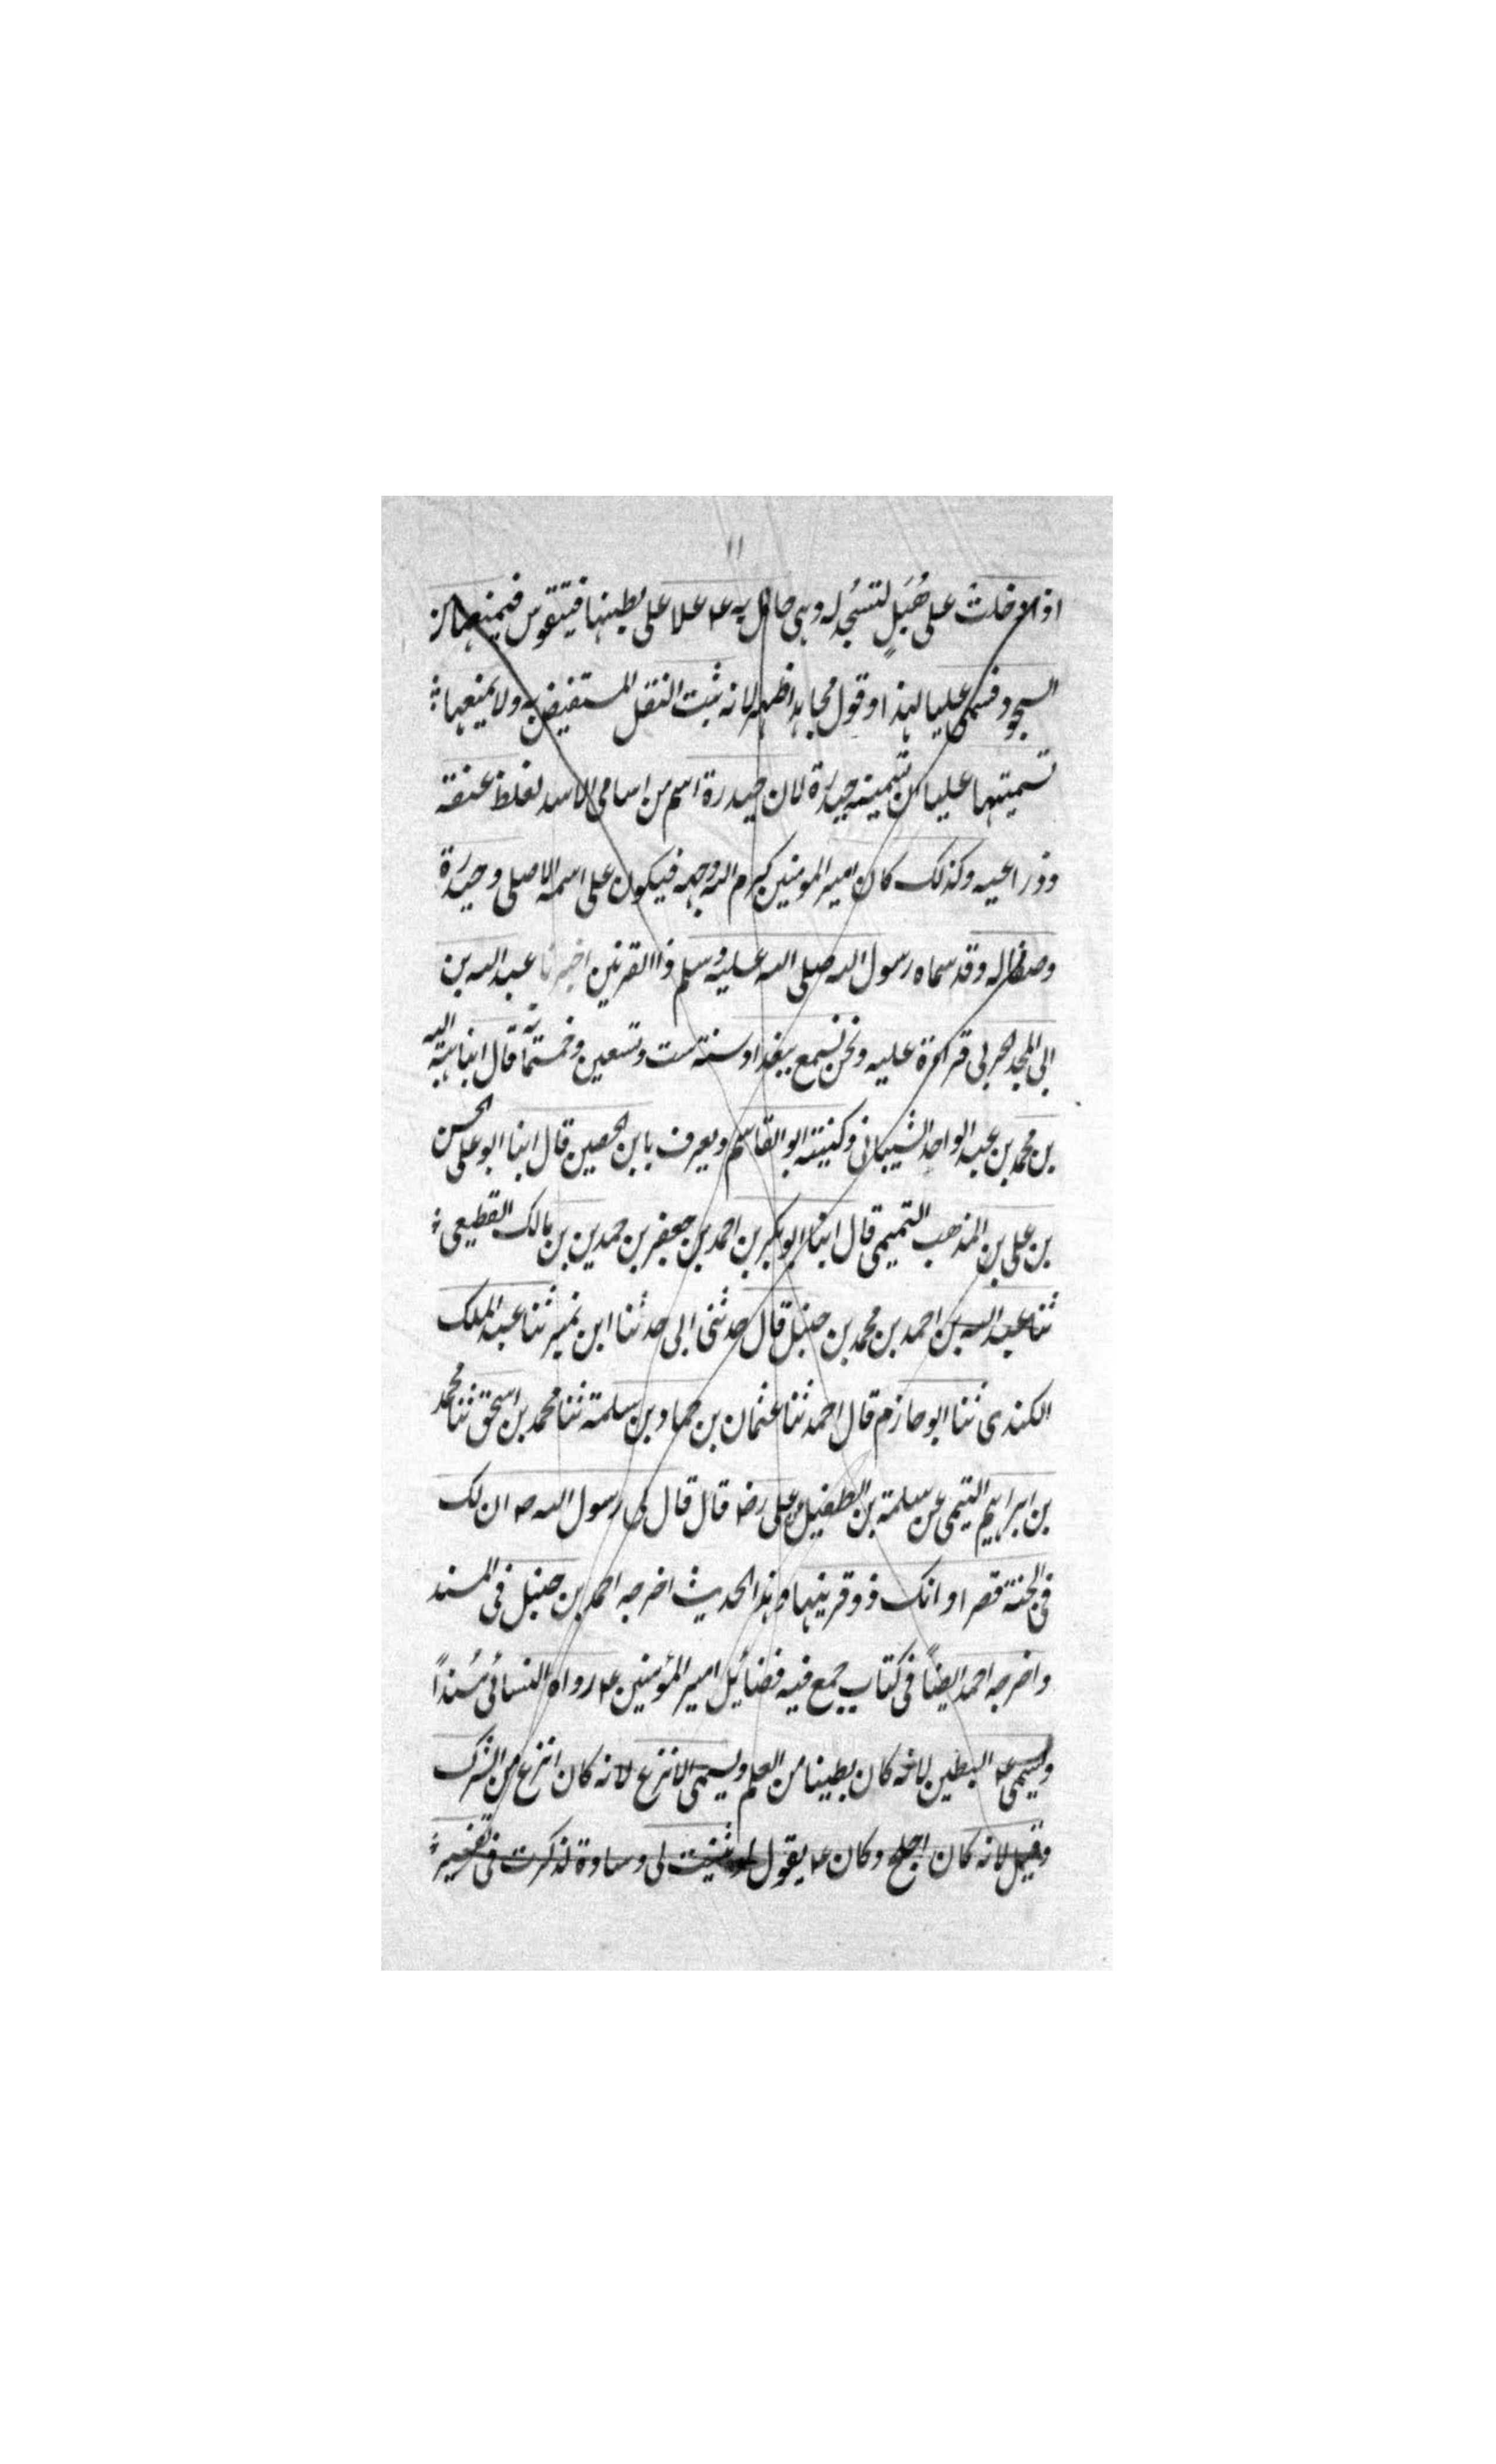 ۱۱
اذا دخلت على هُبَلٍ لتسْجُد له وهى حامل به ع علا على بطنها فيتقوس فيمنعها من
السجود فسمى عليا لهذا وقول مجاهد اظهر لانه ثبت النقل المستفيض به ولا يمنعها
تسميتها عليا من تسميته حيدرة لان حيدرة اسم من اسامى الاسد لغلظ عنقه
وذراعيه وكذلك كان امير المومنين كرم الله وجهه فيكون على اسمه الاصلى وحيدَرَة
وصفا له وقد سماه رسول الله صلى الله عليه وسلم ذا القرنين اخبرنا عبد الله بن
ابى المجد الحربى قراءة عليه ونحن نسمع ببغداد سنة ست وتسعين وخمسمائة قال انبا هبة الله
بن محمد بن عبد الواحد الشيبانى وكنيته ابو القاسم ويعرف بابن الحصين قال انبا ابو على الحسن
بن على بن المذهب التميمى قال انبا ابو بكر بن احمد بن جعفر بن حمدين بن مالك القطيعى
ثنا عبد الله بن احمد بن محمد بن حنبل قال حدثنى ابى حدثنا ابن نمير ثنا عبد الملك
الكندى ثنا ابو حازم قال احمد ثنا عثمان بن حماد بن سلمة ثنا محمد بن اسحق ثنا محمد
بن ابراهيم التيمى عن سلمة بن الطفيل عن على رضا قال قال لى رسول الله ص ان لك
فى الجنة قصرا وانك ذو قرينها وهذا الحديث اخرجه احمد بن حنبل فى المسند
واخرجه احمد ايضاً فى كتاب جمع فيه فضائل امير المؤمنين ع رواه النسائى مُسْنداً
ويسمى ع البطين لانه كان بطينا من العلم ويسمى الانزع لانه كان انزع من الشرك
وقيل لانه كان اجلح وكان ع يقول لو ثنيت لى وسادة لذكرت فى تفسير